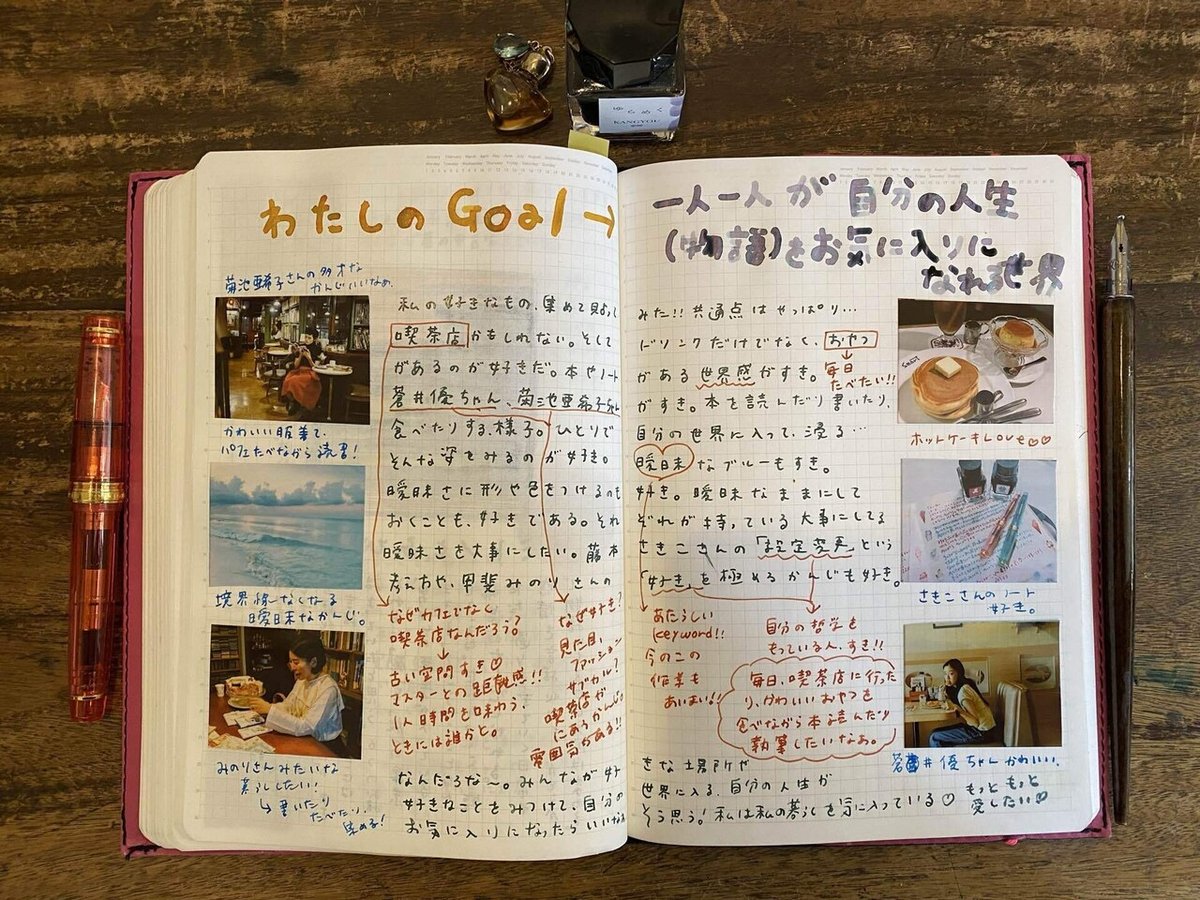 ゆらめく
KANGYOU
わたしのGoal→
一人一人が自分の人生
(物語)をお気に入りに
なれる世界
菊池亜希子さんの多才な
かんじいいなぁ。
かわいい服着て、
パフェたべながら読書!
境界線なくなる
曖昧なかんじ。
みのりさんみたいな
暮らししたい!
↳書いたり
たべたり、
集める!
私の好きなもの、集めて見よって
喫茶店かもしれない。そして
があるのが好きだ。本やノート
蒼井優ちゃん、菊池亜希子ちゃん
食べたりする、様子。ひとりで
そんな姿をみるのが好き。
曖昧さに形や色をつけるのも
おくことも、好きである。それ
曖昧さを大事にしたい。藤本
考え方や、甲斐みのりさんの
なぜカフェでなく
喫茶店なんだろう?
↓
古い空間すき♡
マスターとの距離感!!
1人時間を味わう、
ときには誰かと。
なぜ好き?
見た目、
ファッション
サブカル?
喫茶店が
にあうかんじ。
雰囲気がある!!
なんだろな〜。みんなが好
好きなことをみつけて、自分の
お気に入りになったらいいなぁ
みた!!共通点はやっぱり…
ドリンクだけでなく、おやつ
がある世界感がすき。
↓
毎日
たべたい!!
がすき。本を読んだり書いたり、
自分の世界に入って、浸る…
曖昧なブルーもすき。
好き。曖昧なままにして
ぞれが持っている大事にしてる
さきこさんの「設定変更」という
「好き」を極めるかんじも好き。
あたらしい
keyword!!
今のこの
作業も
あいまい!!
自分の哲学を
もっている人、すき!!
毎日、喫茶店に行った
り、かわいいおやつを
食べながら本読んだり
執筆したいなぁ。
きな場所や
世界に入る、自分の人生が
そう思う!私は私の暮らしを気に入っている♡
ホットケーキLove♡♡
さきこさんのノート
好き。
蒼井優ちゃんかわいい、
もっともっと
愛したい♡